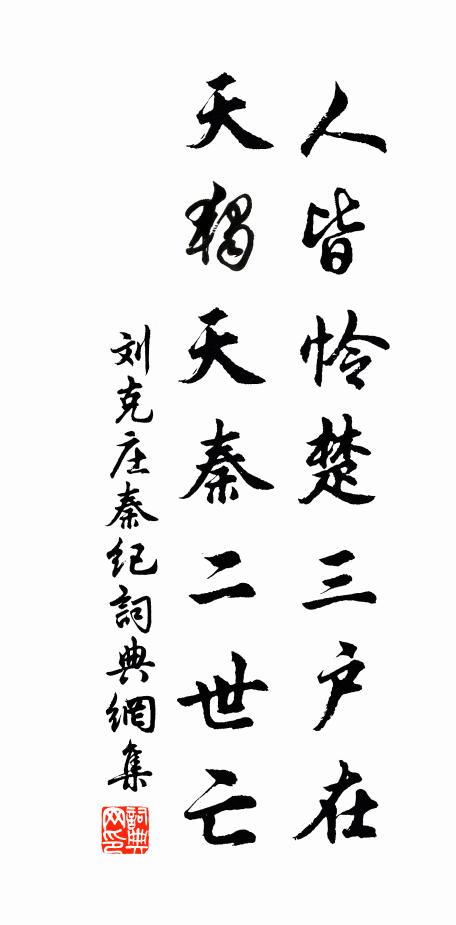 人皆怜楚三户在
天独天秦二世亡
刘克庄秦纪詞典網集
詞典
网印